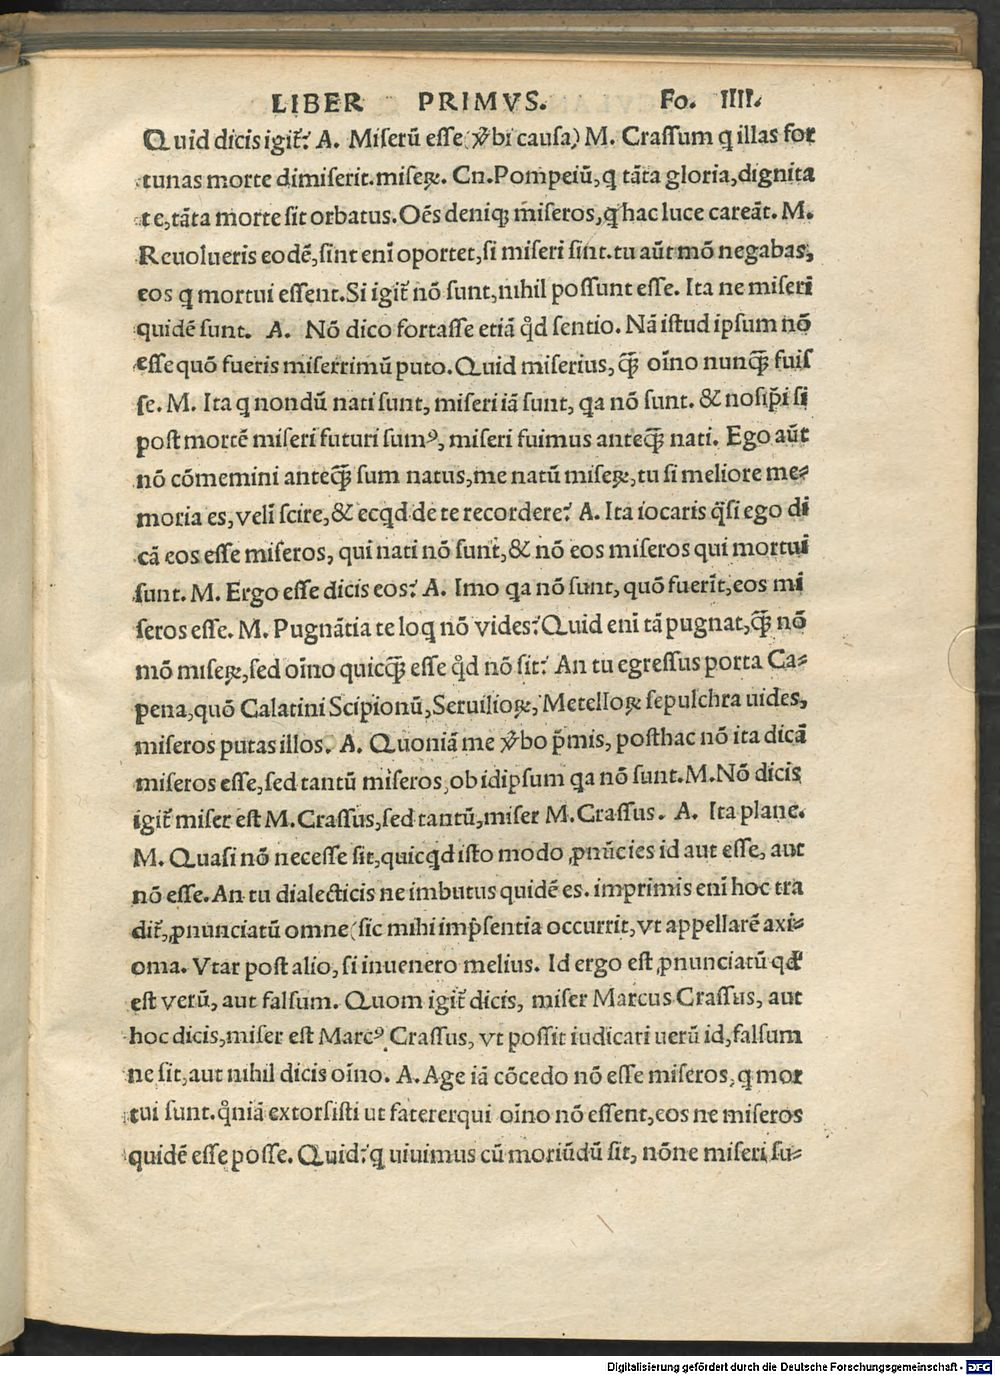 LIBER PRIMVS. Fo. IIII.
Quid dicis igit᷑? A. Miserū esse (v̄bi causa) M. Crassum q illas for
tunas morte dimiserit.miseꝝ. Cn.Pompeiū,q tāta gloria,dignita
te,tāta morte sit orbatus.Oēs deniqꝫ miseros,q hac luce careāt. M.
Reuolueris eodē,sint enī oportet,si miseri sint.tu aūt mō negabas,
eos q mortui essent.Si igit᷑ nō sunt,nihil possunt esse. Ita ne miseri
quidē sunt. A. Nō dico fortasse etiā qd̓ sentio. Nā istud ipsum nō
esse quō fueris miserrimū puto. Quid miserius, q̄ꝫ oīno nunq̄ꝫ fuis
se. M. Ita q nondū nati sunt, miseri iā sunt, qa nō sunt. & nosip̄i si
post mortē miseri futuri sumꝰ, miseri fuimus anteq̄ꝫ nati. Ego aūt
nō cōmemini anteq̄ꝫ sum natus,me natū miseꝝ,tu si meliore me⸗
moria es,velī scire,& ecqd de te recordere? A. Ita iocaris q̄si ego di
cā eos esse miseros, qui nati nō sunt,& nō eos miseros qui mortui
sunt. M. Ergo esse dicis eos? A. Imo qa nō sunt, quō fuerīt,eos mi
seros esse. M. Pugnātia te loq nō vides? Quid enī tā pugnat,q̄ꝫ nō
mō miseꝝ,sed oīno quicq̄ꝫ esse qd̓ nō sit? An tu egressus porta Ca⸗
pena,quō Calatini Scipionū,Seruilioꝝ, Metelloꝝ sepulchra uides,
miseros putas illos. A. Quoniā me v̄bo p̄mis, posthac nō ita dicā
miseros esse,sed tantū miseros,ob idipsum qa nō sunt.M.Nō dicis
igit᷑ miser est M.Crassus,sed tantū,miser M.Crassus. A. Ita plane.
M. Quasi nō necesse sit,quicqd isto modo ꝓnūcies id aut esse, aut
nō esse. An tu dialecticis ne imbutus quidē es. imprimis enī hoc tra
dit᷑,ꝓnunciatū omne (sic mihi imp̄sentia occurrit, vt appellarē axi⸗
oma. Vtar post alio, si inuenero melius. Id ergo est ꝓnunciatū qd̓
est verū, aut falsum. Quom igit᷑ dicis, miser Marcus Crassus, aut
hoc dicis,miser est Marcꝰ Crassus, vt possit iudicari uerū id,falsum
ne sit,aut nihil dicis oīno. A. Age iā cōcedo nō esse miseros,q mor
tui sunt.qn̄iā extorsisti ut faterer qui oīno nō essent,eos ne miseros
quidē esse posse. Quid? q uiuimus cū moriūdū sit, nōne miseri su⸗
Digitalisierung gefördert durch die Deutsche Forschungsgemeinschaft - DFG